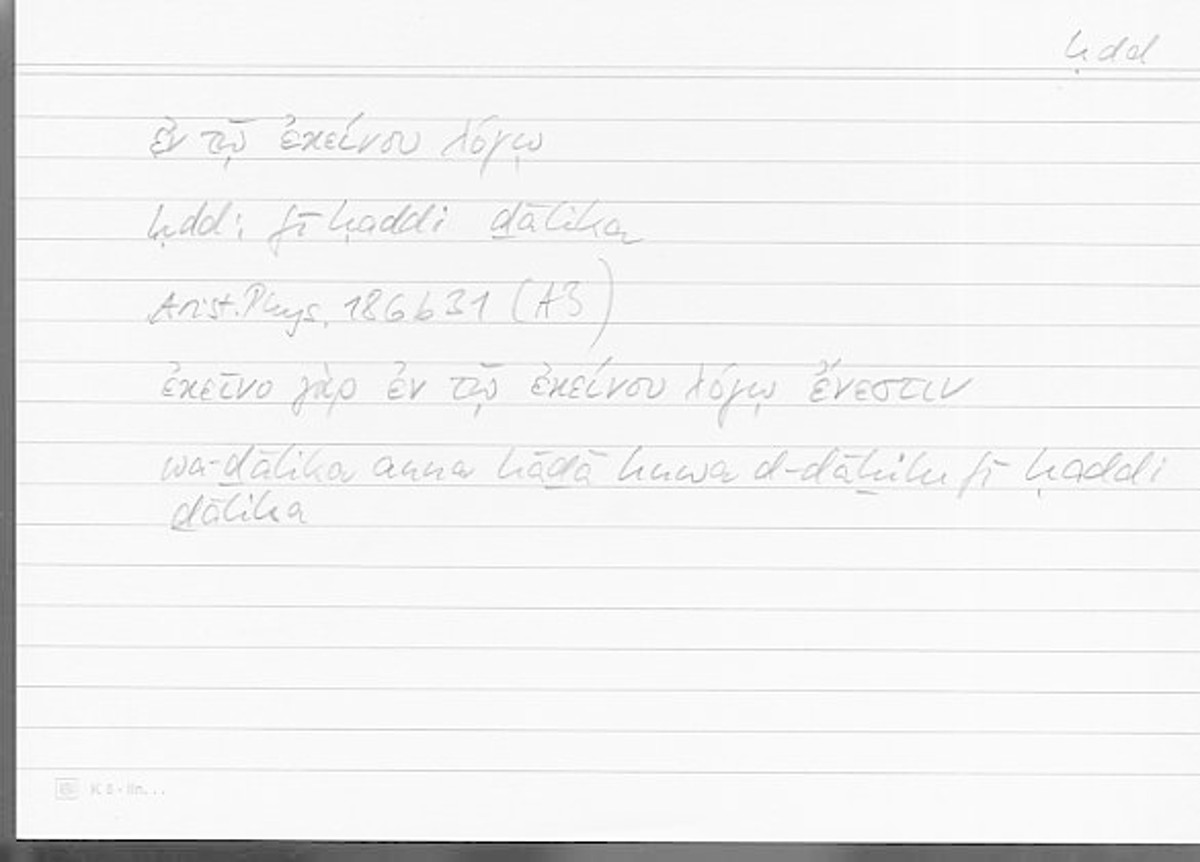 ḥdd
ἐν τῷ ἐκείνου λόγῳ
ḥdd: fī ḥaddi ḏālika
Arist. Phys. 186b31 (A3)
ἐκεῖνο γὰρ ἐν τῷ ἐκείνου λόγῳ ἔνεστιν
wa-ḏālika anna hāḏā huwa d-dāḫilu fī ḥaddi
ḏālika